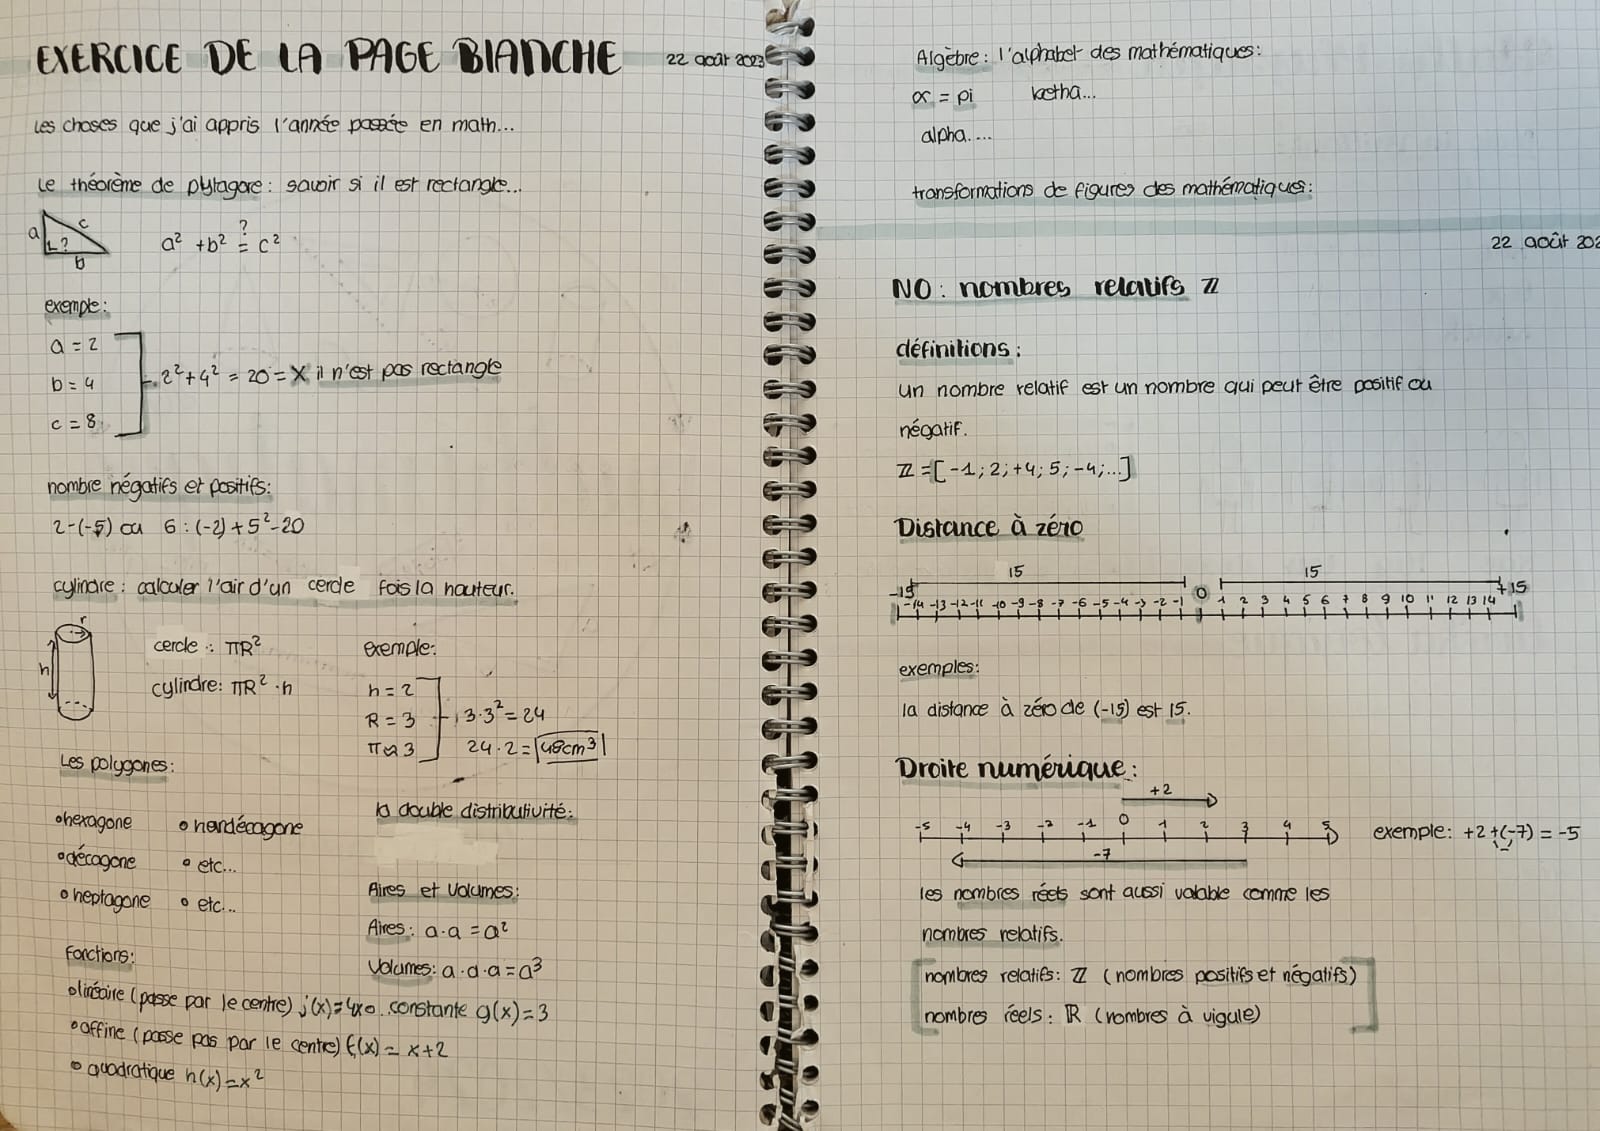 EXERCICE DE LA PAGE BLANCHE
22 août 2023
Les choses que j'ai appris l'année passée en math...
Le théorème de pytagore : savoir si il est rectangle...
a c ? b
a² + b² ?= c²
exemple :
a = 2
b = 4
c = 8
2² + 4² = 20 = X il n'est pas rectangle
nombre négatifs et positifs:
2-(-5) ou 6 : (-2) + 5² - 20
cylindre : calculer l'air d'un cercle fois la hauteur.
r
h
cercle : πR²
cylindre: πR² · h
exemple:
h = 2
R = 3
π ≈ 3
3·3² = 24
24 · 2 = 48cm³
Les polygones :
hexagone
hendécagone
décagone
etc...
heptagone
etc...
la double distributivité:
Aires et Volumes:
Aires : a · a = a²
Volumes: a · a · a = a³
Fonctions:
linéaire (passe par le centre) j(x)=4x constante g(x) = 3
affine (passe pas par le centre) f(x) = x+2
quadratique h(x) = x²
Algèbre : l'alphabet des mathématiques:
α = pi
betha...
alpha....
transformations de figures des mathématiques:
22 août 202
NO : nombres relatifs ℤ
définitions :
un nombre relatif est un nombre qui peut être positif ou
négatif.
ℤ = [ -1 ; 2 ; +4 ; 5 ; -4 ; ... ]
Distance à zéro
15 15
-15 -14 -13 -12 -11 -10 -9 -8 -7 -6 -5 -4 -3 -2 -1 0 1 2 3 4 5 6 7 8 9 10 11 12 13 14 +15
exemples:
la distance à zéro de (-15) est 15.
Droite numérique :
+2
-5 -4 -3 -2 -1 0 1 2 3 4 5
-7
exemple : +2 +(-7) = -5
les nombres réels sont aussi valable comme les
nombres relatifs.
nombres relatifs: ℤ (nombres positifs et négatifs)
nombres réels : ℝ (nombres à vigule)